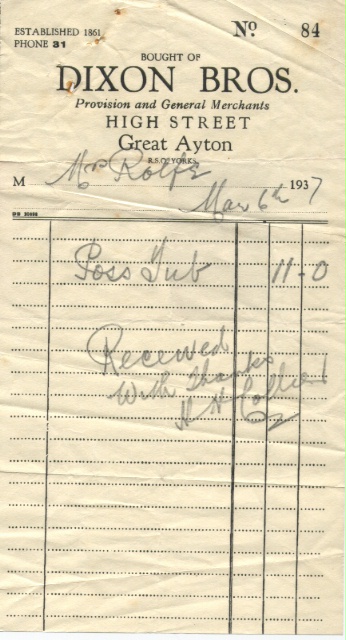 ESTABLISHED 1861
PHONE 31
Nº 84
BOUGHT OF
DIXON BROS.
Provision and General Merchants
HIGH STREET
Great Ayton
R.S.O. YORKS.
M Mrs Rolfe
Mar 6th 1937
Poss Tub 11-0
Received
With Thanks
H H Collier